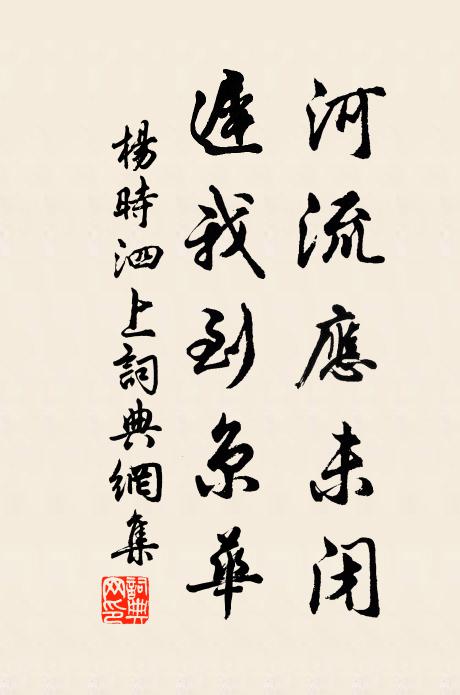 河流應未閉
遲我到京華
楊時泗上詞典網集
詞典網印